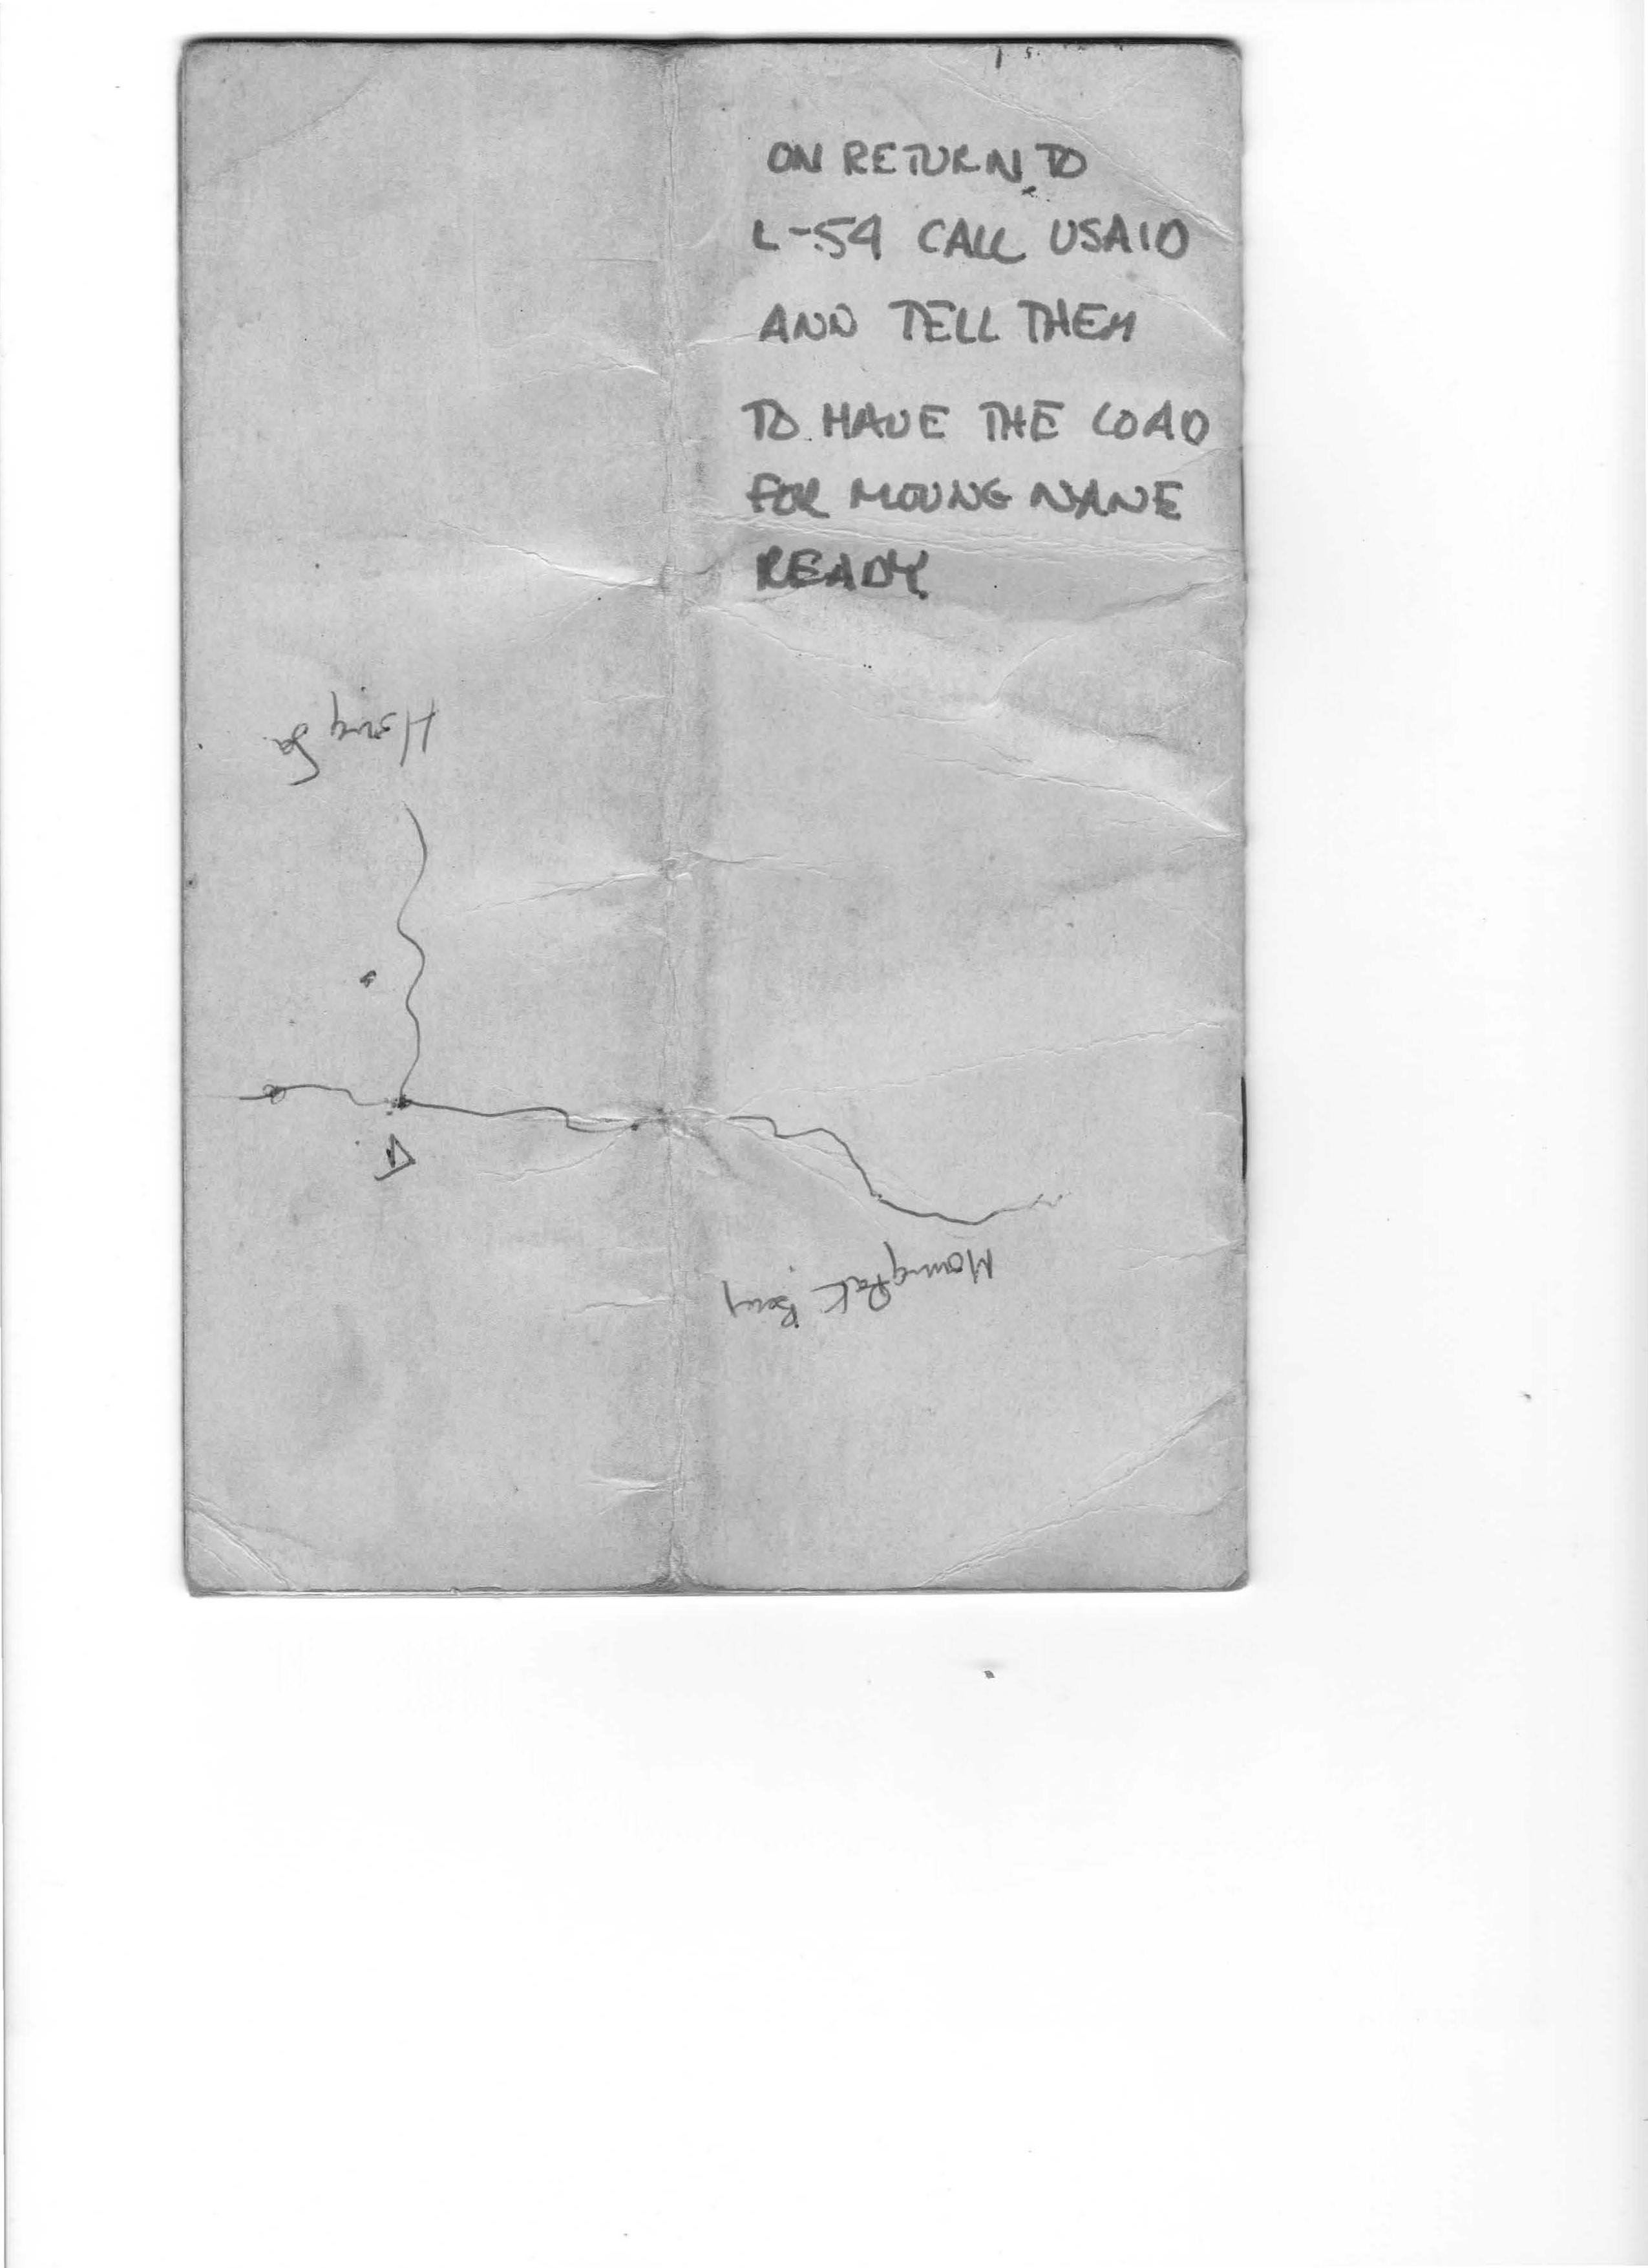 ON RETURN TO
L-54 CALL USAID
AND TELL THEM
TO HAVE THE LOAD
FOR MOUNG NANE
READY.
Moung Pak Beng